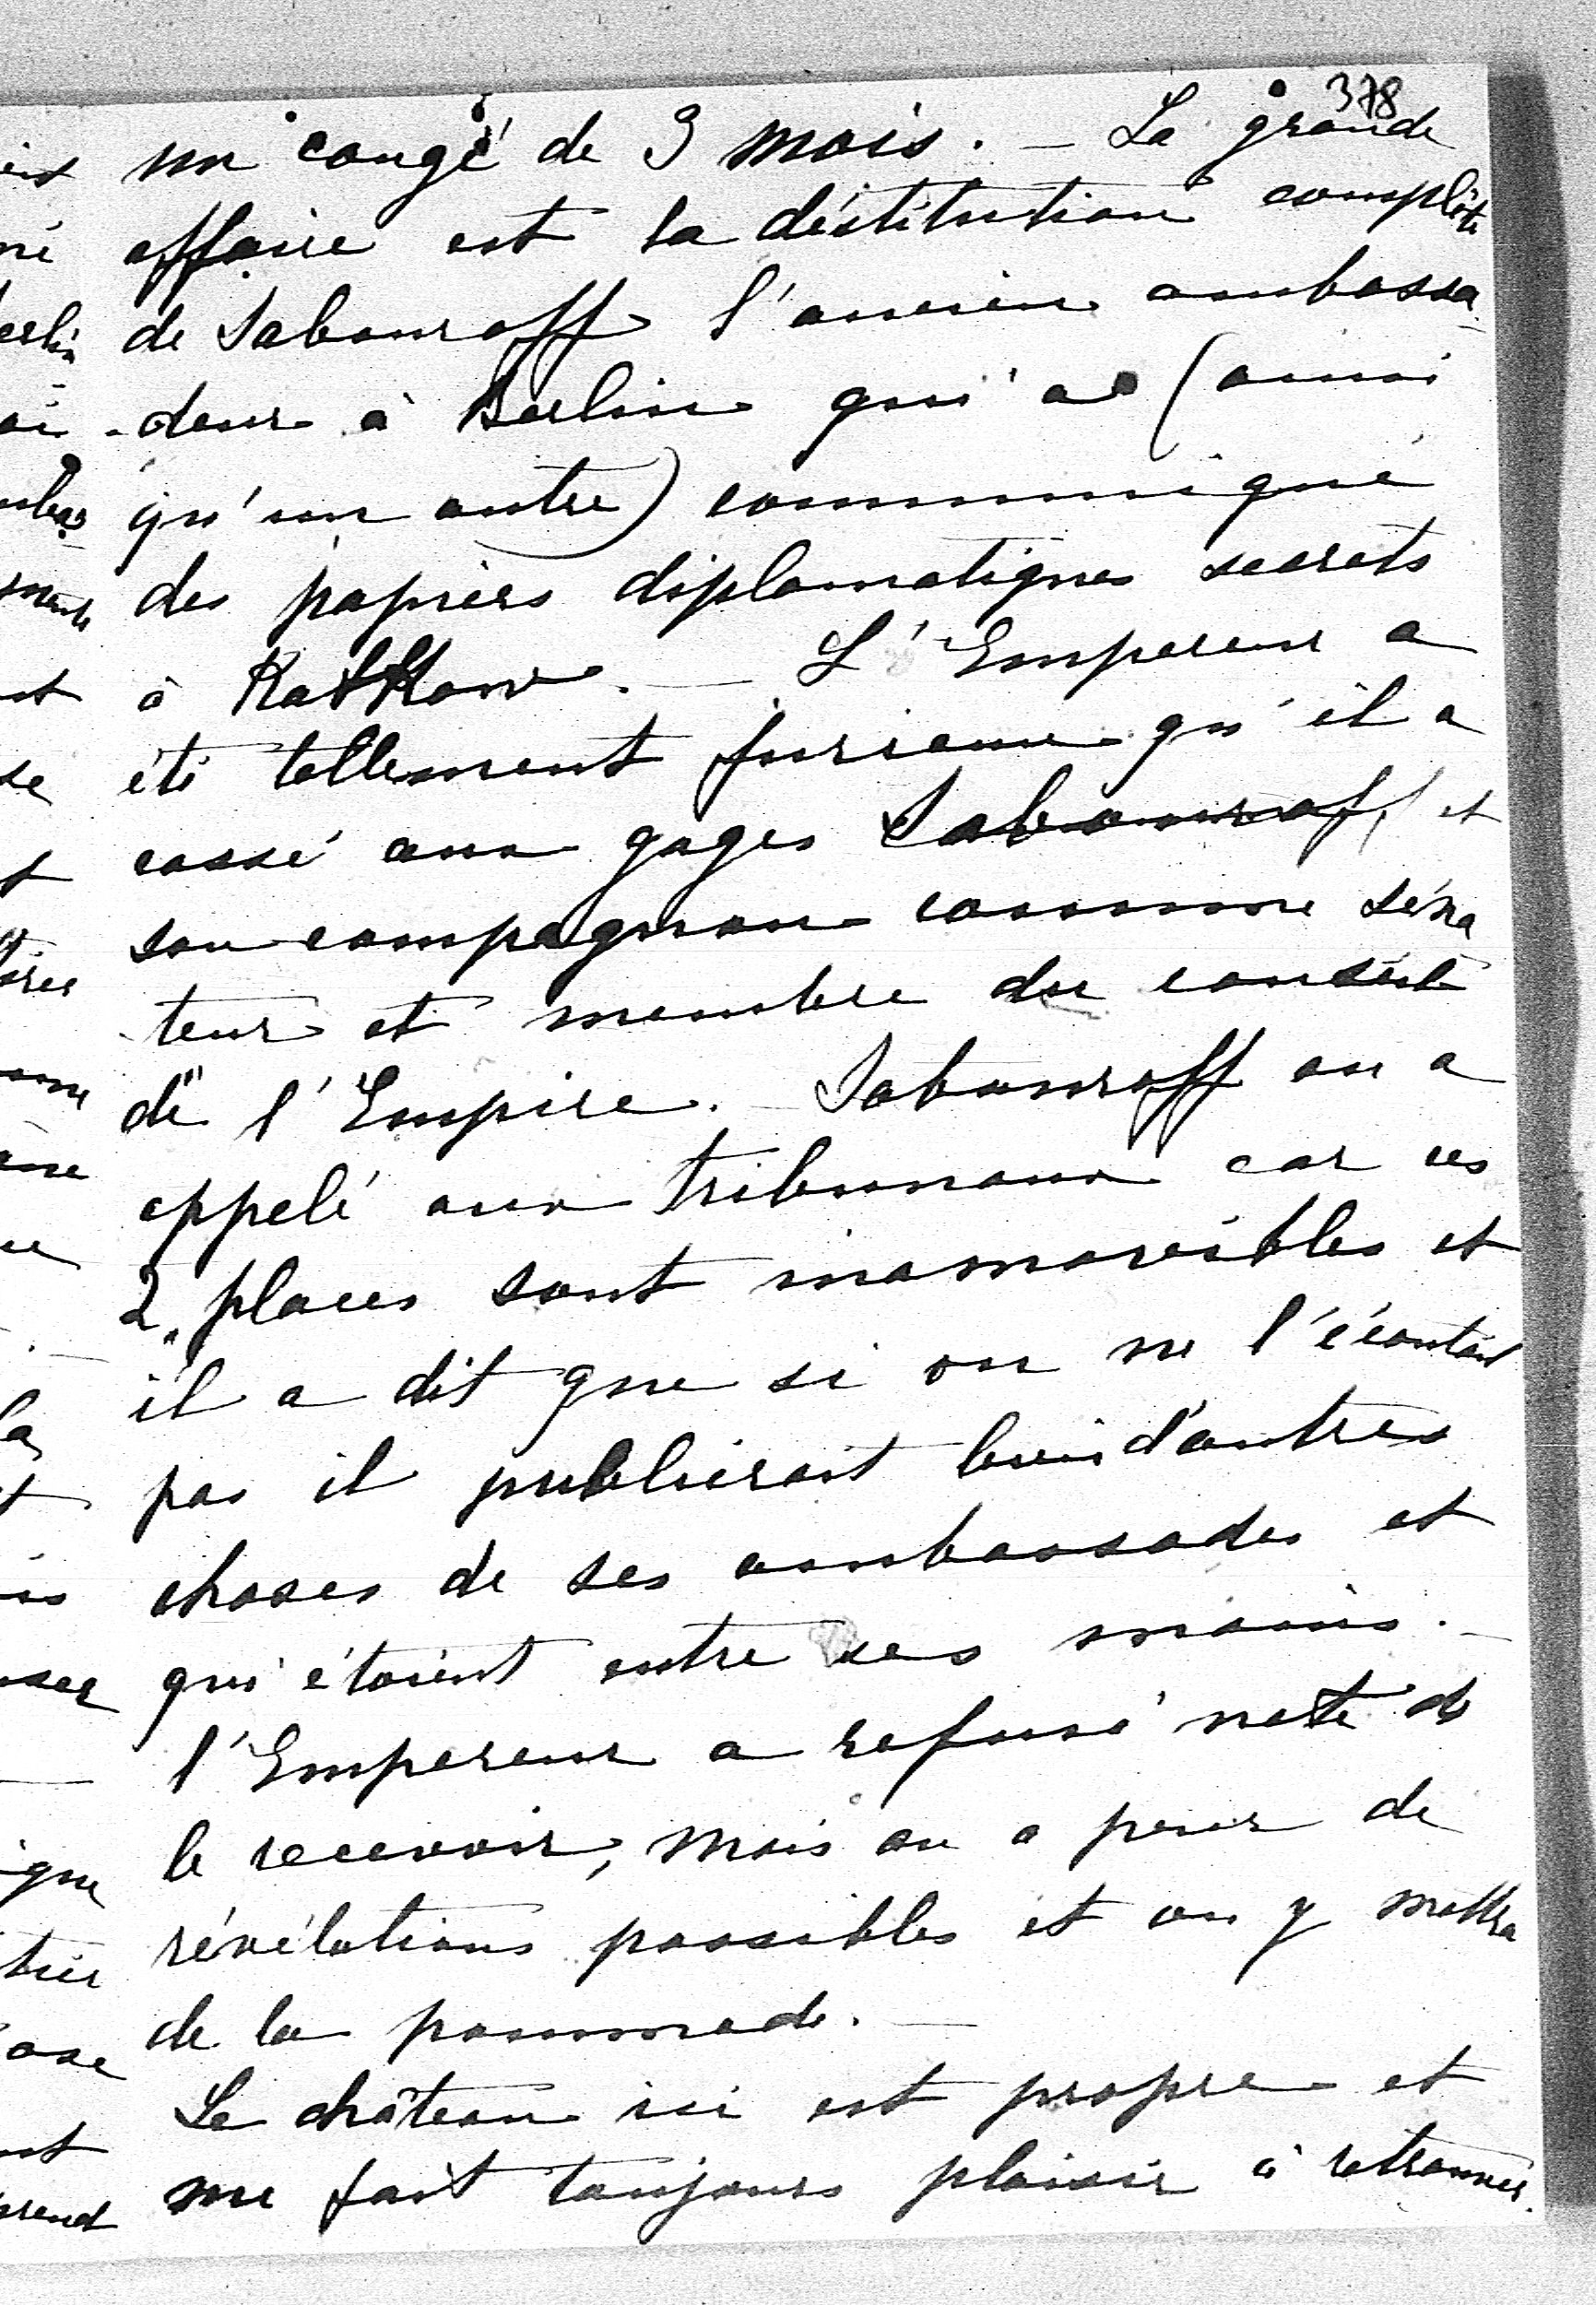 378
un congé de 3 mois. — La grande
affaire est la déstitution complète
de Sabouroff l'ancien ambassa
-deur à Berlin qui a (ainsi
qu'un autre) communiqué
des papiers diplomatiques secrets
à Katkow. — L'Empereur a
été tellement furieux qu'il a
cassé aux gages Sabouroff et
son compagnon comme séna
teur et membre du conseil
de l'Empire. — Sabouroff en a
appelé aux tribunaux car ces
2 places sont inamovibles et
il a dit que si on ne l'écoutait
pas il publierait bien d'autres
choses de ses ambassades et
qui étaient entre ses mains. —
l'Empereur a refusé nette de
le recevoir, mais on a peur de
révélations possibles et on y mettra
de la pommade. —
Le château ici est propre et
me fait toujours plaisir à retrouver.